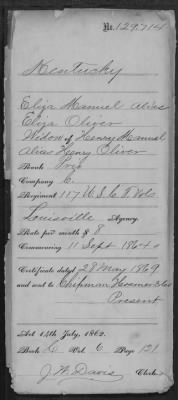 No. 129,714
Kentucky
Eliza Manuel Alias
Eliza Oliver
Widow of Henry Manuel
Alias Henry Oliver
Rank Priv
Company C.
Regiment 117 U S C T Vols
Louisville Agency.
Rate per month $ 8
Commencing 11 Sept 1864
Certificate dated 28 May 1869
and sent to Chipman Hosmer & Co
Present
Act 14th July, 1862.
Book Vol. 6 Page 121
J. W. Davis Clerk.